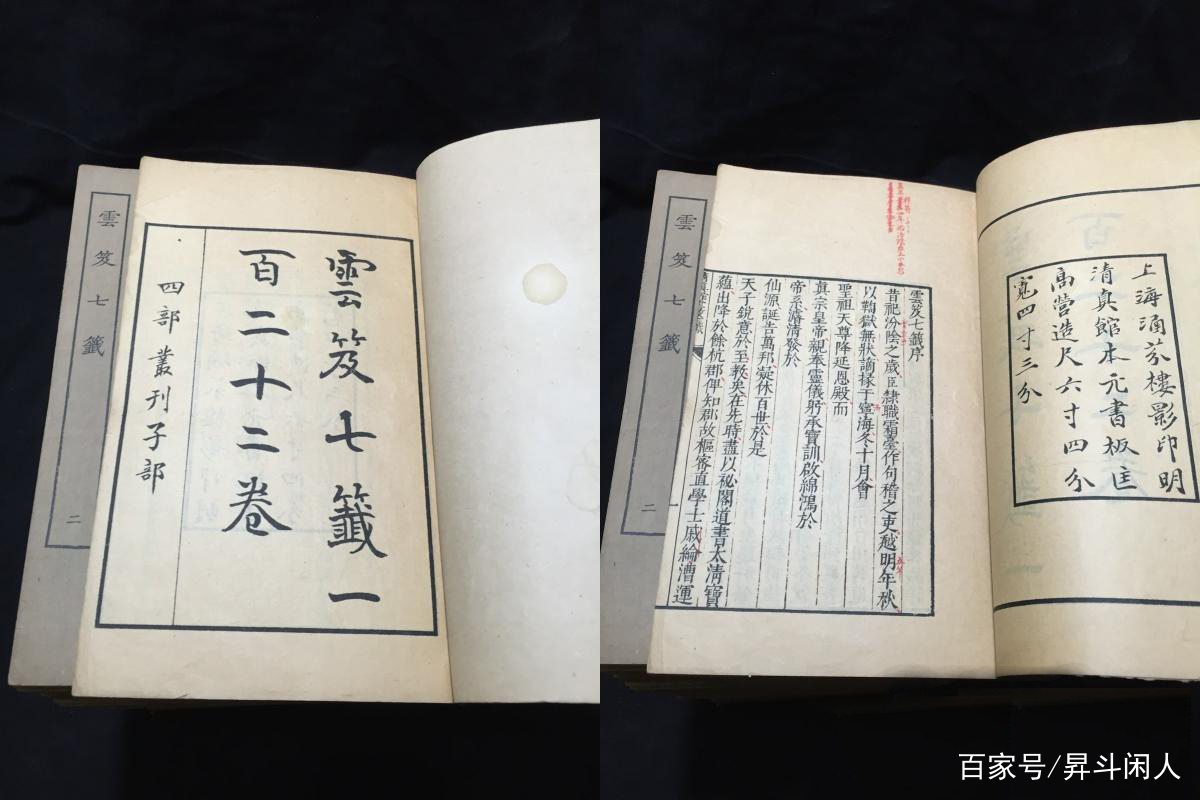 雲笈七籤
二
雲笈七籤一
百二十二卷
四部叢刊子部
雲笈七籤
二
上海涵芬樓影印明
清真館本元書板匡
高營造尺六寸四分
寬四寸三分
雲笈七籤序
昔祀汾陰之歲臣隸職霜臺作句稽之吏越明年秋
以鞫獄無狀謫掾于寧海冬十月會
聖祖天尊降延恩殿而
真宗皇帝親奉靈儀躬承寶訓啟綿鴻於
帝系濬清發於
仙源誕告萬邦凝休百世於是
天子銳意於至教矣在先時盡以祕閣道書太清寶
蘊出降於餘杭郡俾知郡故樞密直學士戚綸漕運
百家号/昇斗闲人